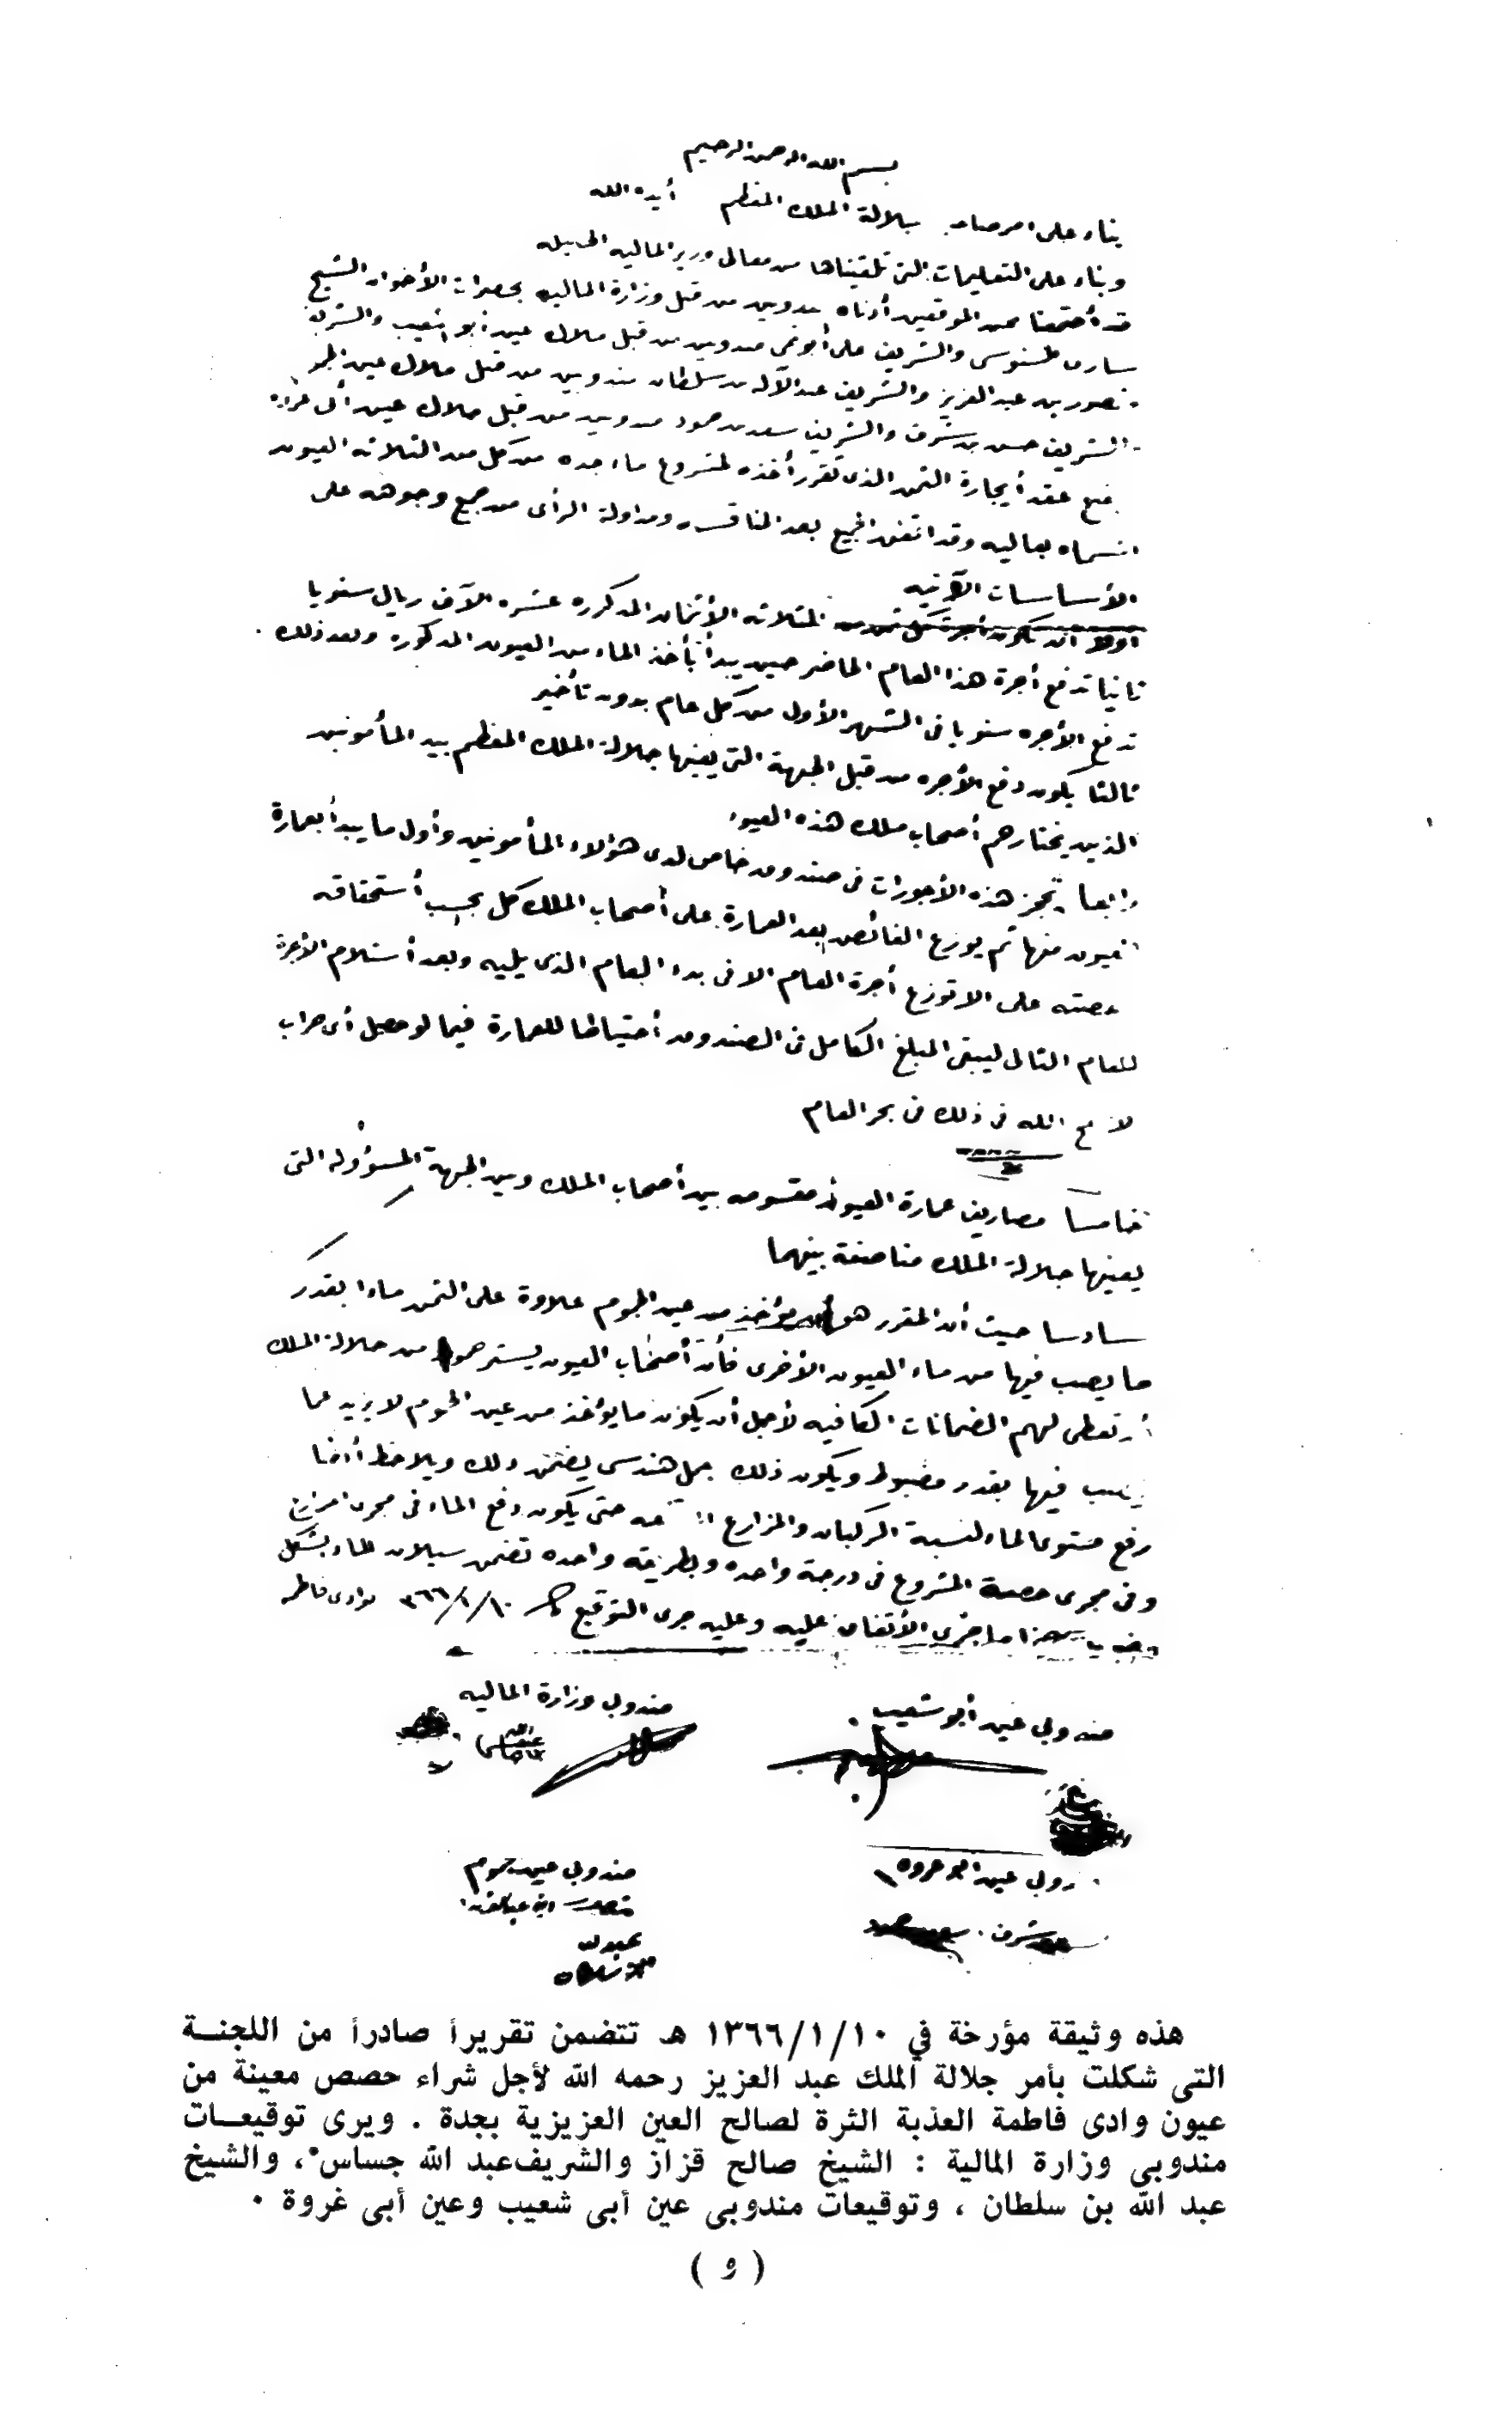 بسم الله الرحمن الرحيم
بناء على امر صاحب جلالة الملك المعظم أيده الله
وبناء على التعليمات التى تلقيناها من معالى وزير الماليه الجليله
قد أجتمعنا نحن الموقعين أدناه مندوبين من قبل وزارة الماليه بحضرات الأخوان الشيخ
والشريف على أبو نمي مندوبين من قبل ملاك عين أبو شعيب والشريف
منصور بن عبد العزيز والشريف عبد الآله بن سلطان مندوبين من قبل ملاك عين الجموم
والشريف حسن بن شرف والشريف سعد بن حمود مندوبين من قبل ملاك عين أبى عروه
عقد أيجارة الثمن الذى تقرر أخذه لمشروع ماء جده من كل من الثلاثه العيون
بعاليه وقد اتفق الجميع بعد المناقشه ومداولة الرأى من جميع وجوهه على
الأساسات الآتيه
أولا أن تكون أجرة كل ثمن من الثلاثه الأثمان المذكوره عشره الآف ريال سنويا
ثانيا تدفع أجرة هذا العام الحاضر حين يبدأ بأخذ الماء من العيون المذكوره وبعد ذلك
تدفع الأجره سنويا فى الشهر الأول من كل عام بدون تأخير
ثالثا يكون دفع الأجره من قبل الجهة التى يعينها جلالة الملك المعظم بيد المأمونين
الذين يختارهم أصحاب ملك هذه العيون
رابعا تحجز هذه الأجورات فى صندوق خاص لدى هؤلاء المأمونين وأول ما يبدأ بعمارة
العيون منها ثم يوزع الفائض بعد العمارة على أصحاب الملك كل بحسب أستحقاقه
حصته على الا توزع أجرة العام الا فى بدء العام الذى يليه وبعد أستلام الأجرة
للعام التالى ليبقى المبلغ الكامل فى الصندوق أحتياطا للعمارة فيما لو حصل أى خراب
لا سمح الله فى ذلك فى بحر العام
خامسا مصاريف عمارة العيون مقسومه بين أصحاب الملك وبين الجهة المسؤوله التى
يعينها جلالة الملك مناصفة بينهما
سادسا حيث أن المقرر هو أن يؤخذ من عين الجموم علاوة على الثمن ماءا بقدر
ما يصب فيها من ماء العيون الأخرى فأن أصحاب العيون يسترحمون من جلالة الملك
أن تعطى لهم الضمانات الكافيه لأجل أن يكون ما يؤخذ من عين الجموم لا يزيد عما
يصب فيها بقدر مضبوط ويكون ذلك بعمل هندسى يضمن ذلك ويلاحظ أيضا
رفع مستوى الماء لنسبة الركبان والمزارع حتى يكون دفع الماء فى مجرى المزارع
وفى مجرى حصة المشروع فى درجة واحده وبطريقه واحده تضمن سيلان الماء بشكل
هذا ما جرى الأتفاق عليه وعليه جرى التوقيع ١٣٦٦/١/١٠ بوادى فاطمه
مندوبي عين أبو شعيب
مندوبي وزارة الماليه
مندوبي عين ابو عروه
مندوبي عين جموم
شرف
هذه وثيقة مؤرخة في ١٣٦٦/١/١٠ هـ تتضمن تقريراً صادراً من اللجنــة
التى شكلت بأمر جلالة الملك عبد العزيز رحمه الله لأجل شراء حصص معينة من
عيون وادى فاطمة العذبة الثرة لصالح العين العزيزية بجدة . ويرى توقيعــات
مندوبى وزارة المالية : الشيخ صالح قزاز والشريف عبد الله جساس ، والشيخ
عبد الله بن سلطان ، وتوقيعات مندوبى عين أبى شعيب وعين أبى غروة .
( و )